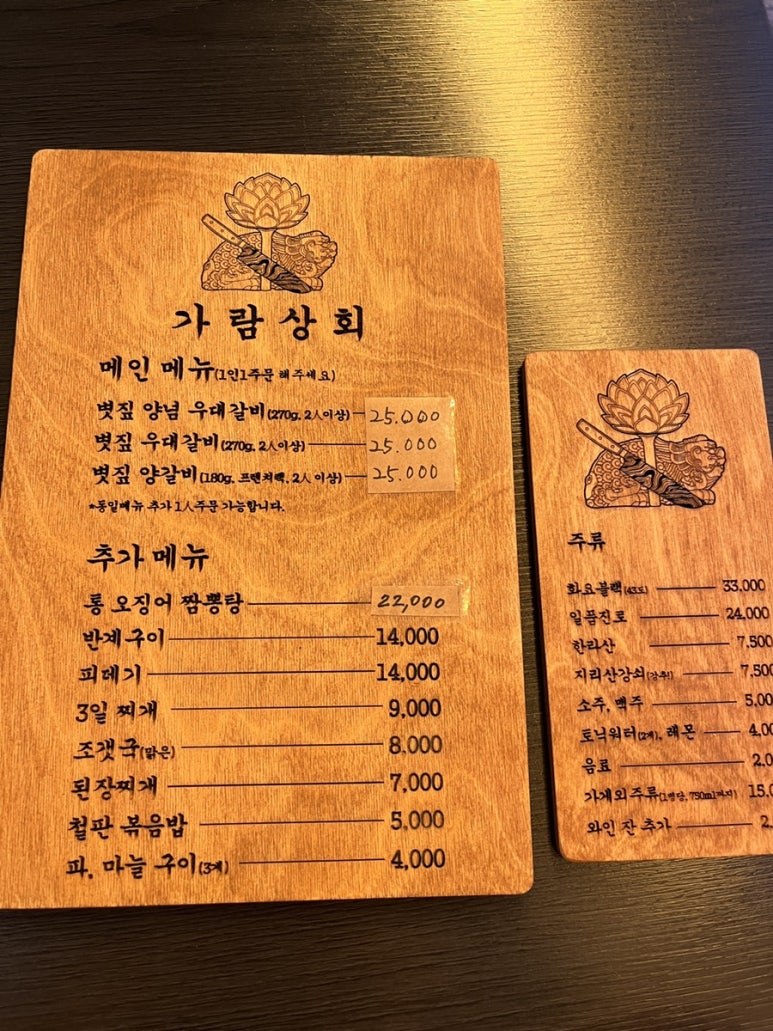 가람상회
메인 메뉴(1인1주문 해주세요)
볏짚 양념 우대갈비(270g, 2人이상) 25.000
볏짚 우대갈비(270g, 2人이상) 25.000
볏짚 양갈비(180g, 프렌치랙, 2人 이상) 25.000
*동일메뉴 추가 1人주문 가능합니다.
추가 메뉴
통 오징어 짬뽕탕 22,000
반계구이 14,000
피데기 14,000
3일 찌개 9,000
조갯국(맑은) 8,000
된장찌개 7,000
철판 볶음밥 5,000
파, 마늘 구이(3개) 4,000
주류
화요블랙(43도) 33,000
일품진로 24,000
한라산 7,500
지리산강쇠(강추!) 7,500
소주, 맥주 5,00
토닉워터(2개), 레몬 4,00
음료 2,0
가게외주류(1병당, 750ml까지) 15,0
와인 잔 추가 2,